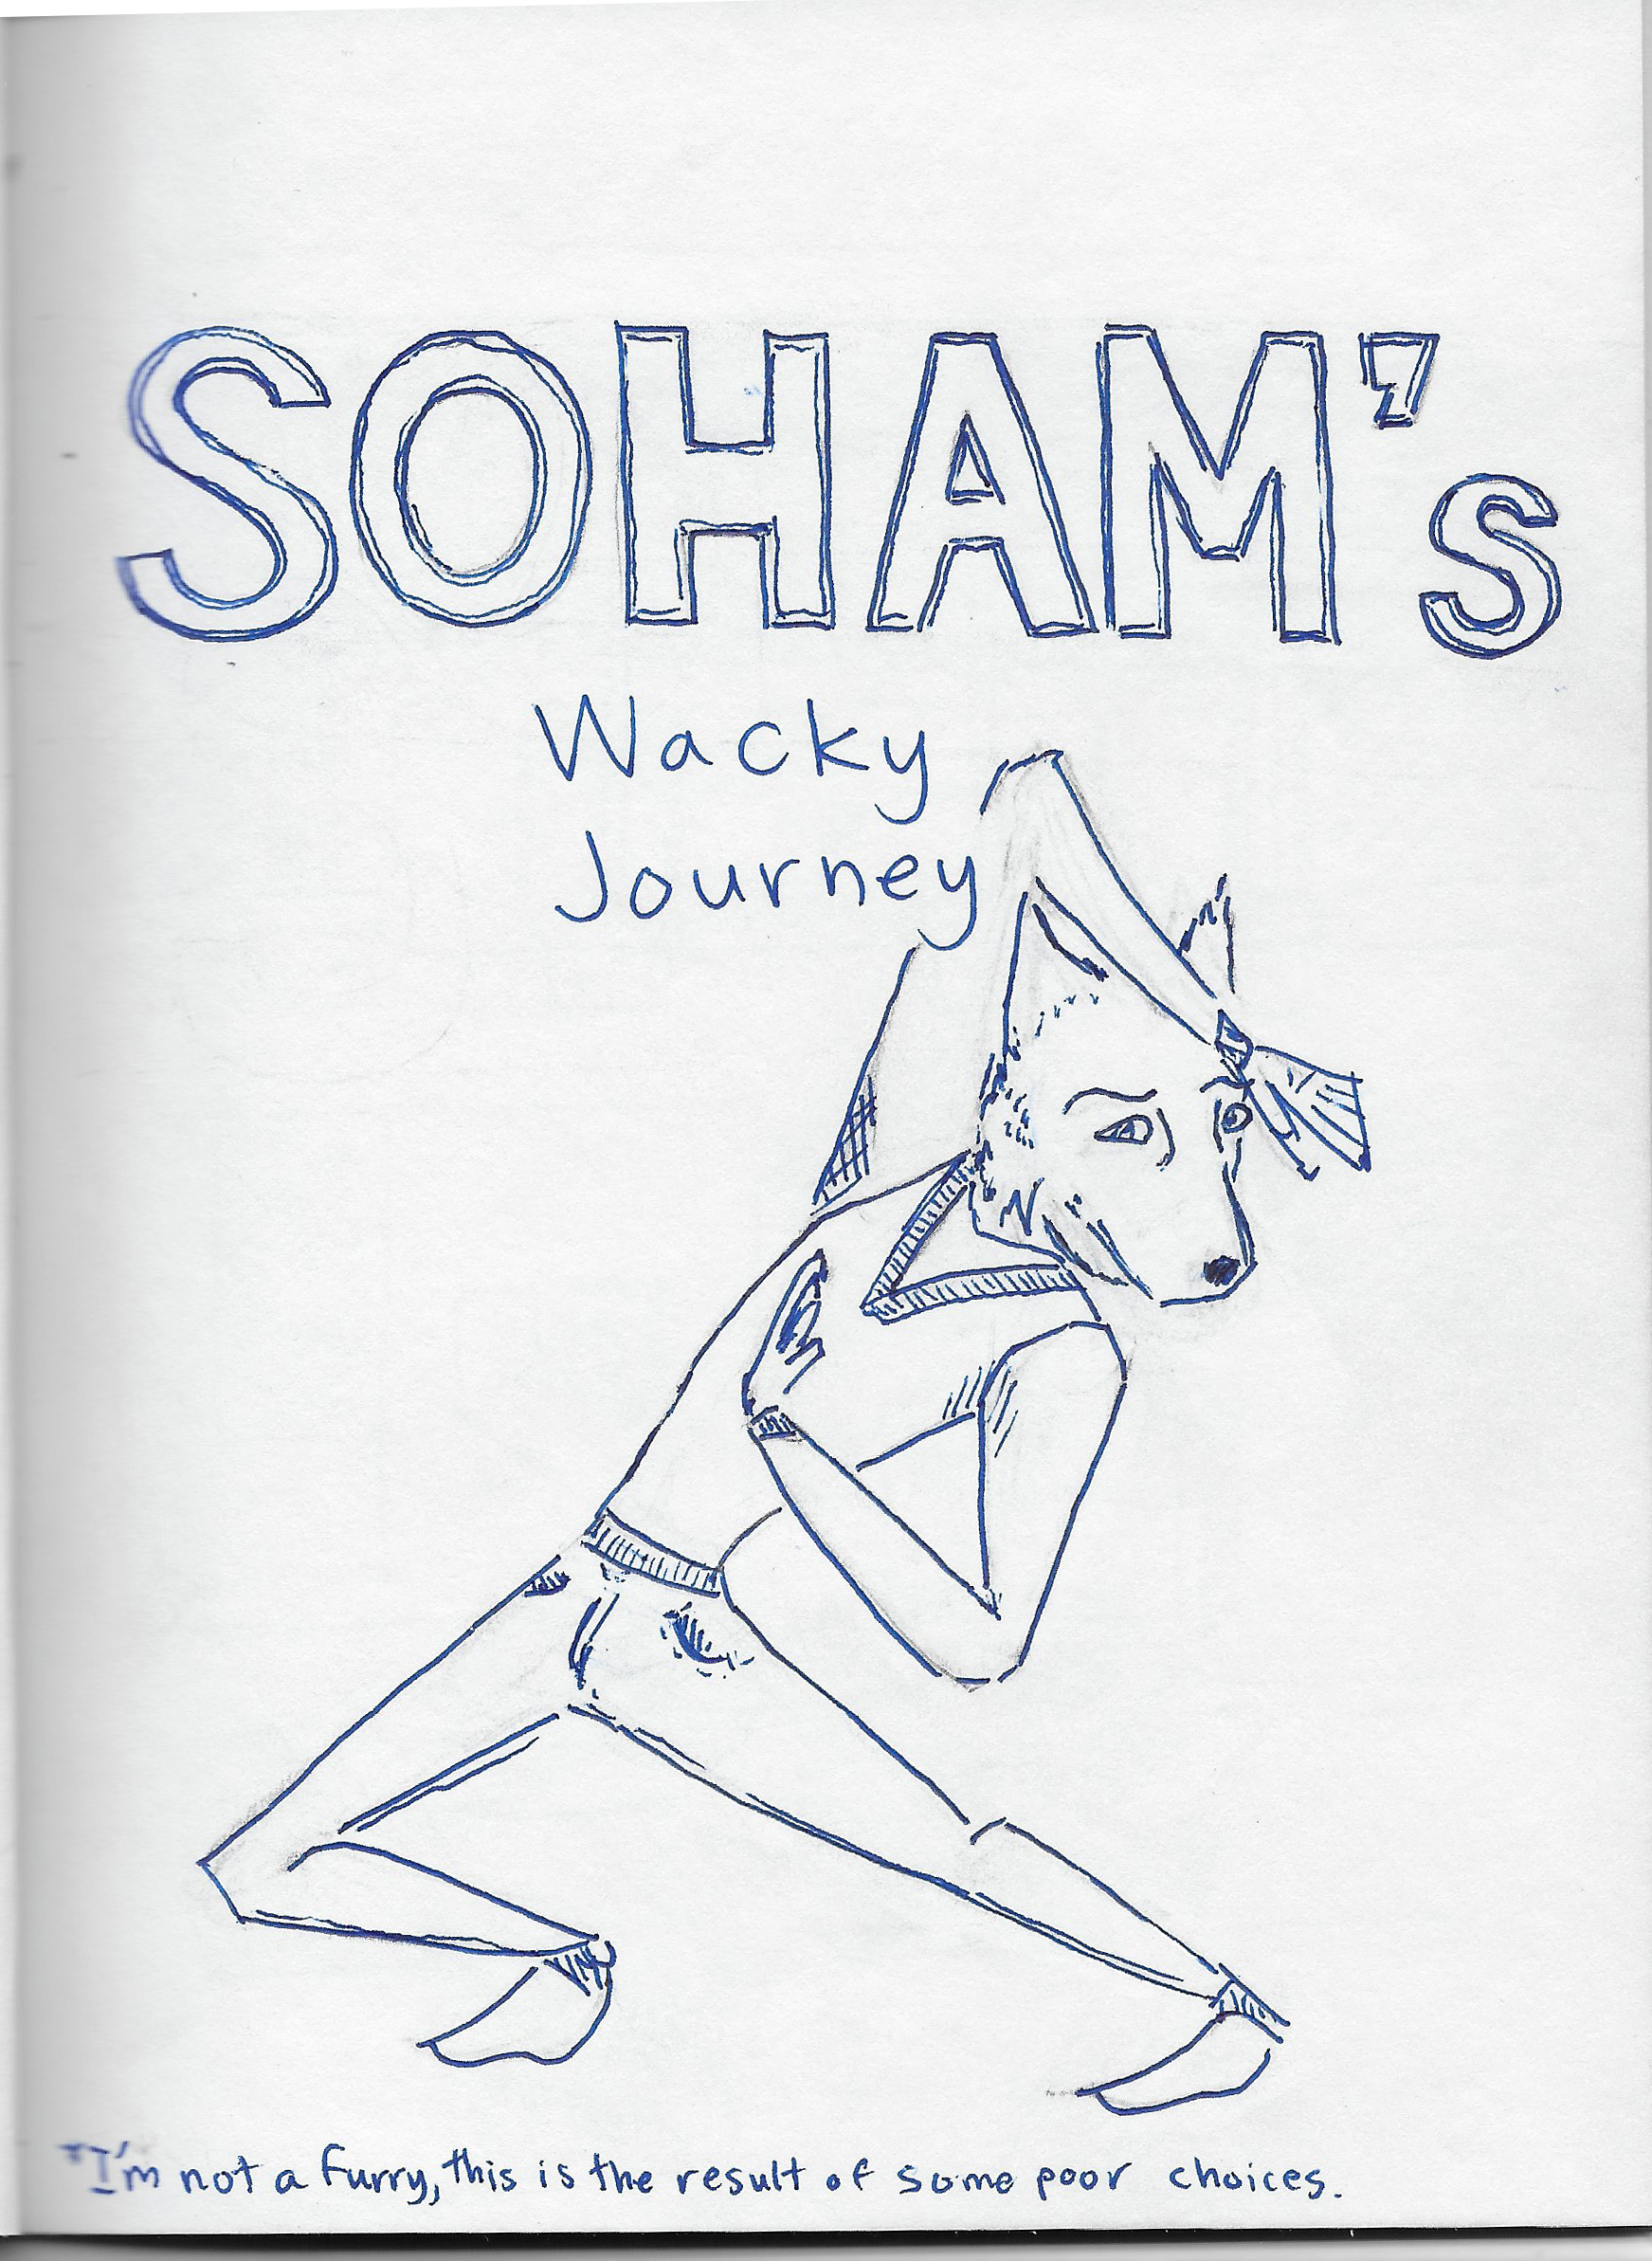 SOHAM's
Wacky
Journey
*I'm not a furry, this is the result of some poor choices.